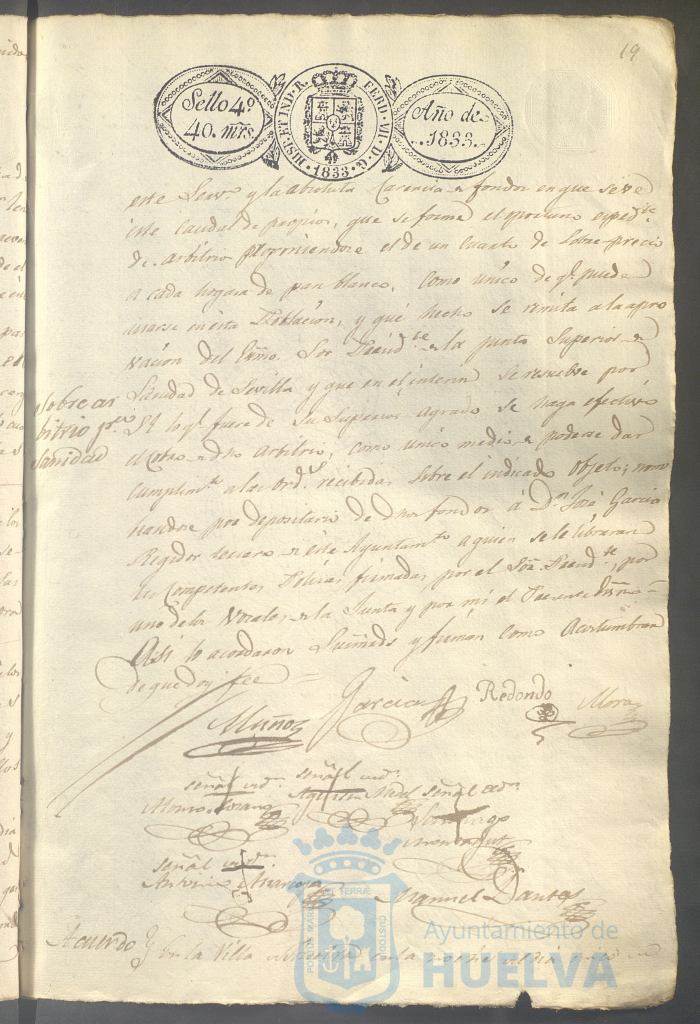 19
Sello 4º
40. mrs.
HISP. ET IND. R. FERD. VII. D. G. 1833.
Año de
1833.
este y la absoluta Carencia de fondos en que se ve
este caudal de propios, que se forme el oportuno expedte
de arbitrio proponiendose el de un cuarto de sobre precio
a cada hogaza de pan blanco, como unico de qe puede
usarse en esta Poblacion, y que hecho se remita a la apro
vacion del Exmo. Sor Presidte de la junta Superior de
Sanidad de Sevilla y que en el interin se resuelve por
sobre ar
bitrio pa
sanidad
S.E. lo qe fuere de su Superior agrado se haga efectivo
el cobro de dho arbitrio, como unico medio de poderse dar
cumplimto a las ords recibidas sobre el indicado objeto; nom
brandose por depositario de dhos fondos á Dn José Garcia
Regidor tercero de este Ayuntamto a quien se le libraran
las competentes Polizas firmadas por el Sor Presidte, por
uno de los Vocales de la Junta y por mi el
Asi lo acordaron Sus mrds y firman como Acostumbran
de que doy fee =
Muñoz
Garcia
Redondo
Mora
señal
señal
señal
Alonso
Agustin
Santiago
señal
Antonio
Manuel Dantas
Acuerdo
En la Villa de
PORTUS MARIS ET TERRÆ CUSTODIA
Ayuntamiento de
HUELVA